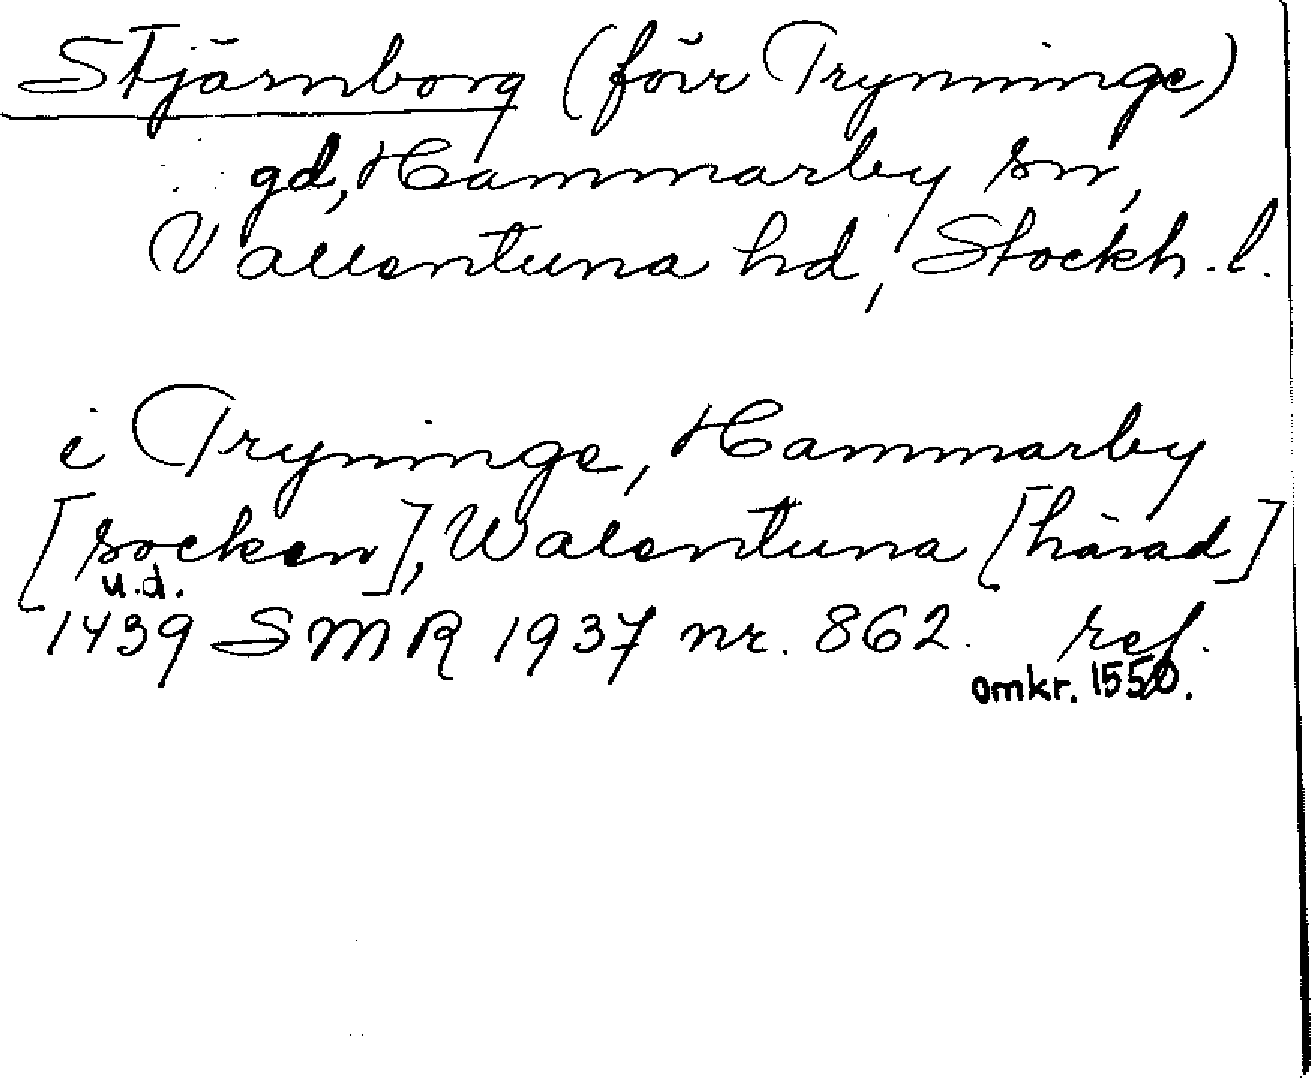 Stjärnborg (förr Trynninge)
gd, Hammarby sn,
Vallentuna hd, Stockh. l.
i Tryninge, Hammarby
[socken], Walentuna [härad]
u.d.
1439 SMR 1937 nr. 862. ref.
omkr. 1550.